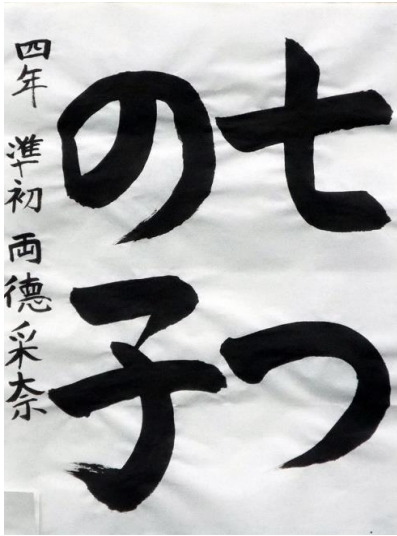 七つ
の子
四年 準初 両徳采奈